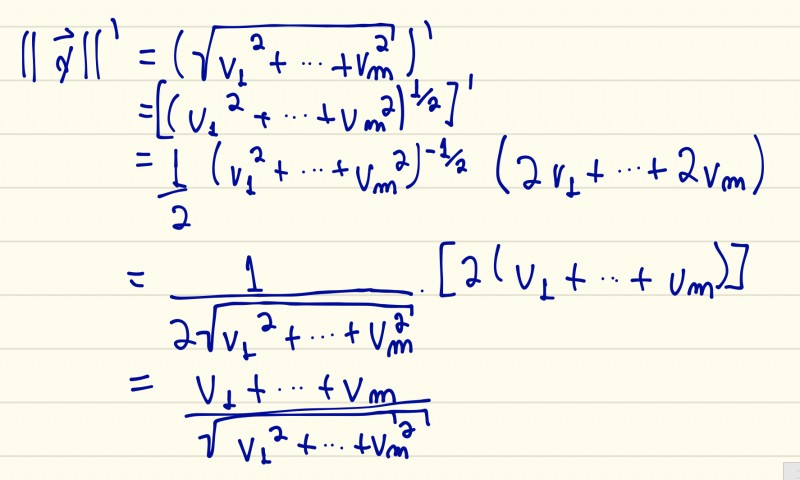 ||v⃗||' = (√(v₁² + ⋯ + vₘ²))'
= [(v₁² + ⋯ + vₘ²)^(1/2)]'
= 1/2 (v₁² + ⋯ + vₘ²)^(-1/2) (2v₁ + ⋯ + 2vₘ)
= 1/(2√(v₁² + ⋯ + vₘ²)) · [2(v₁ + ⋯ + vₘ)]
= (v₁ + ⋯ + vₘ)/√(v₁² + ⋯ + vₘ²)